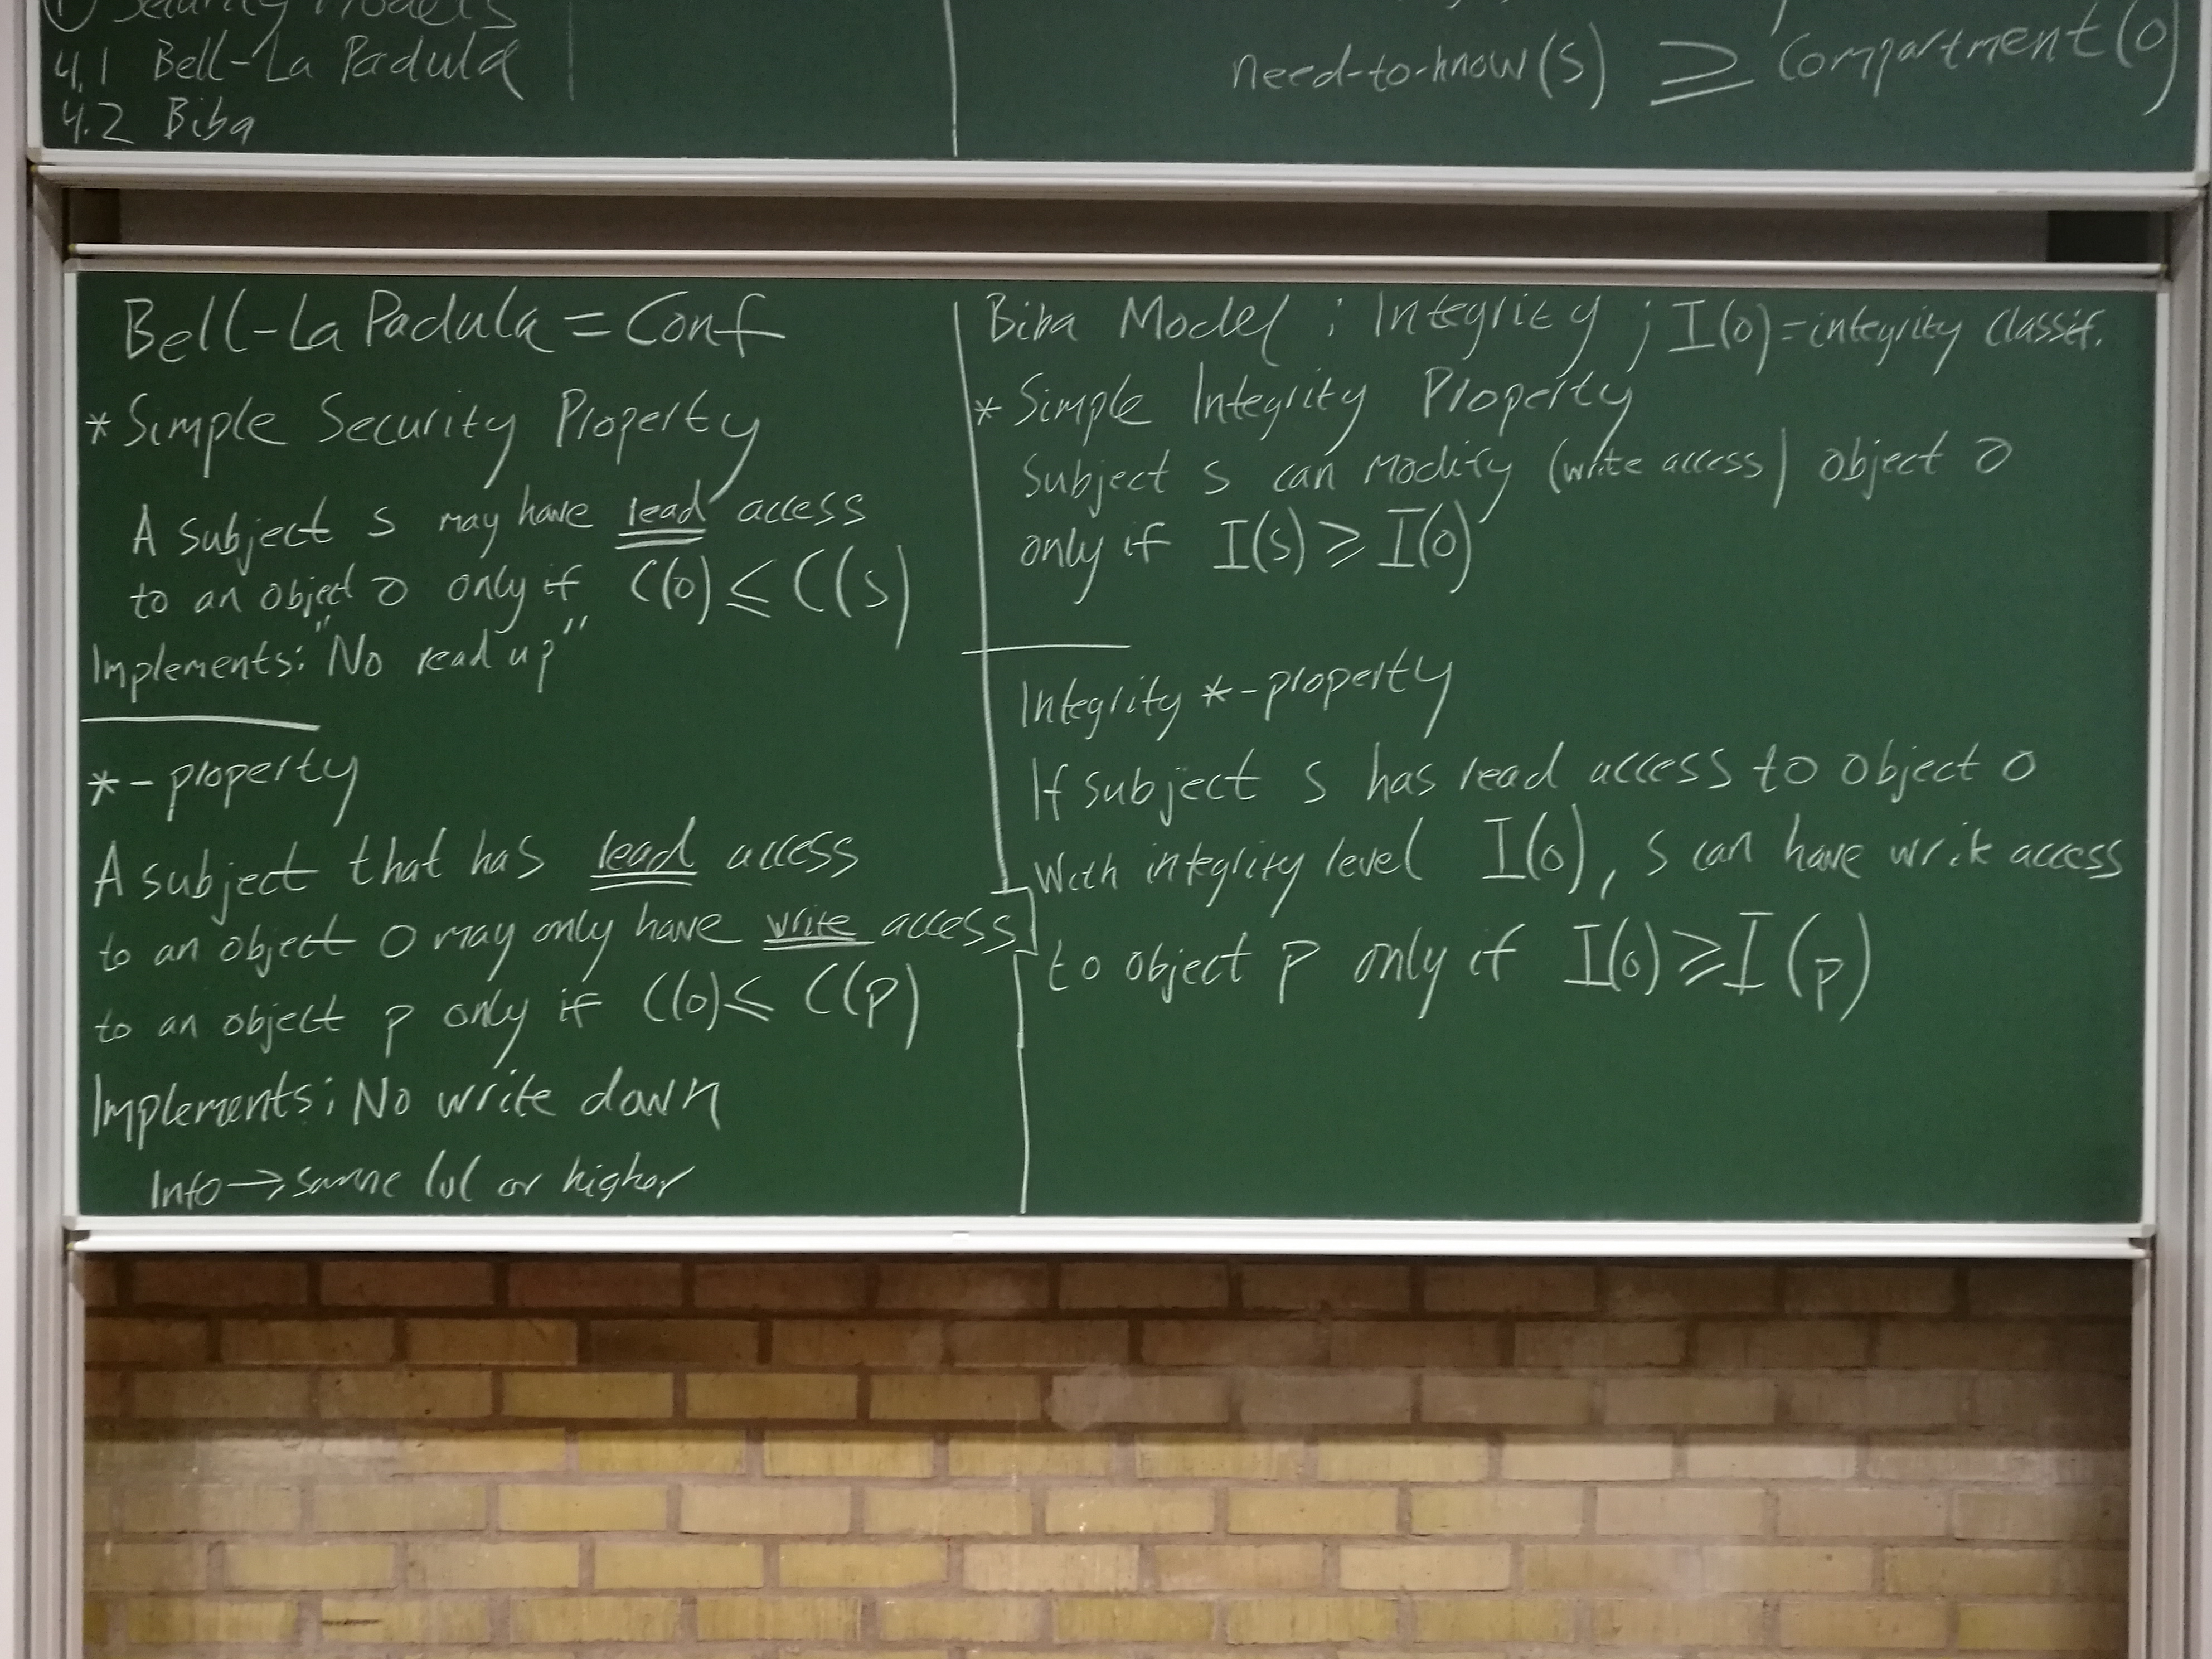 Security Models
4.1 Bell-La Padula
4.2 Biba
need-to-know(s) ≥ Compartment(o)
Bell-La Padula = Conf
* Simple Security Property
A subject s may have read access
to an object o only if C(o) ≤ C(s)
Implements: "No read up"
*-property
A subject that has read access
to an object o may only have write access
to an object p only if C(o) ≤ C(p)
Implements: No write down
Info → same lvl or higher
Biba Model : Integrity ; I(o) = integrity classif.
* Simple Integrity Property
Subject s can modify (write access) object o
only if I(s) ≥ I(o)
Integrity *-property
If subject s has read access to object o
With integrity level I(o), s can have write access
to object p only if I(o) ≥ I(p)